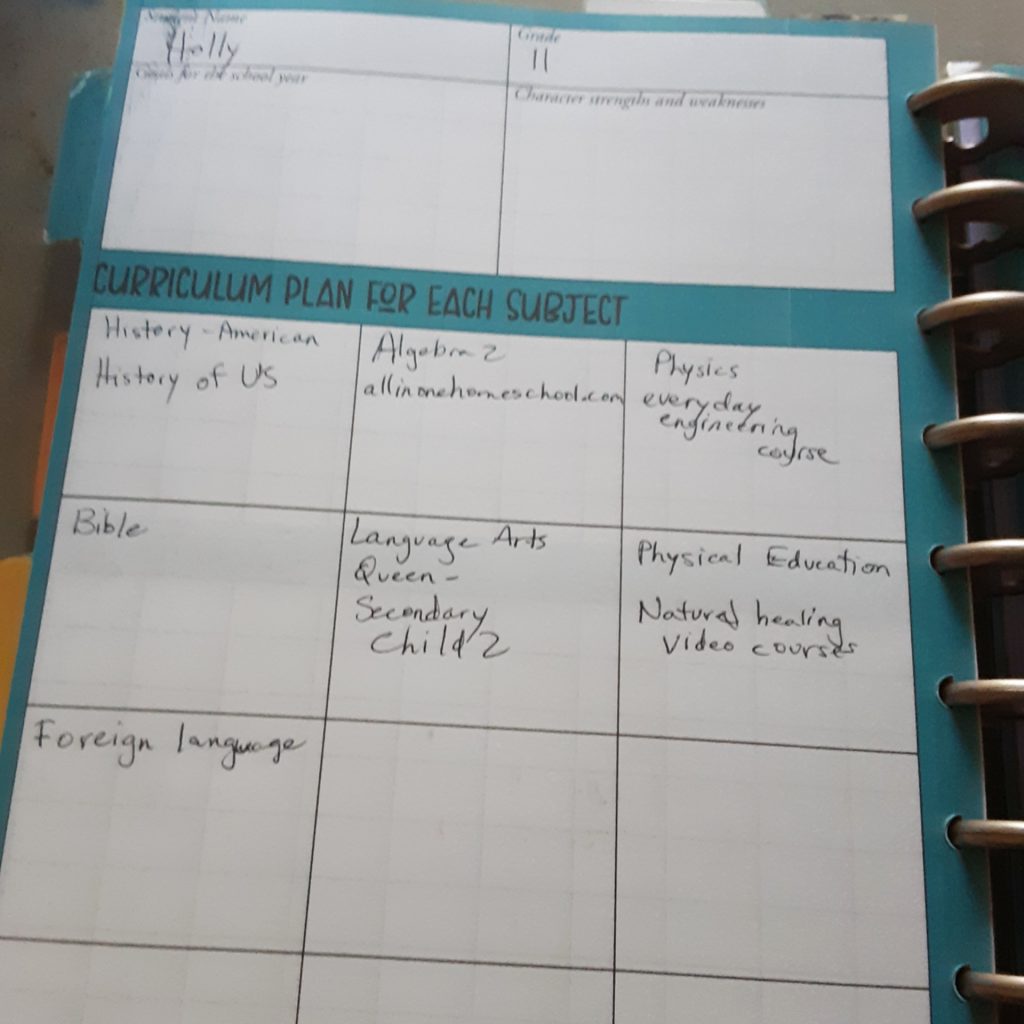 Student Name
Holly
Grade
11
Goals for the school year
Character strengths and weaknesses
CURRICULUM PLAN FOR EACH SUBJECT
History - American
History of US
Algebra 2
allinonehomeschool.com
Physics
everyday
engineering
course
Bible
Language Arts
Queen -
Secondary
Child 2
Physical Education
Natural healing
video courses
Foreign language